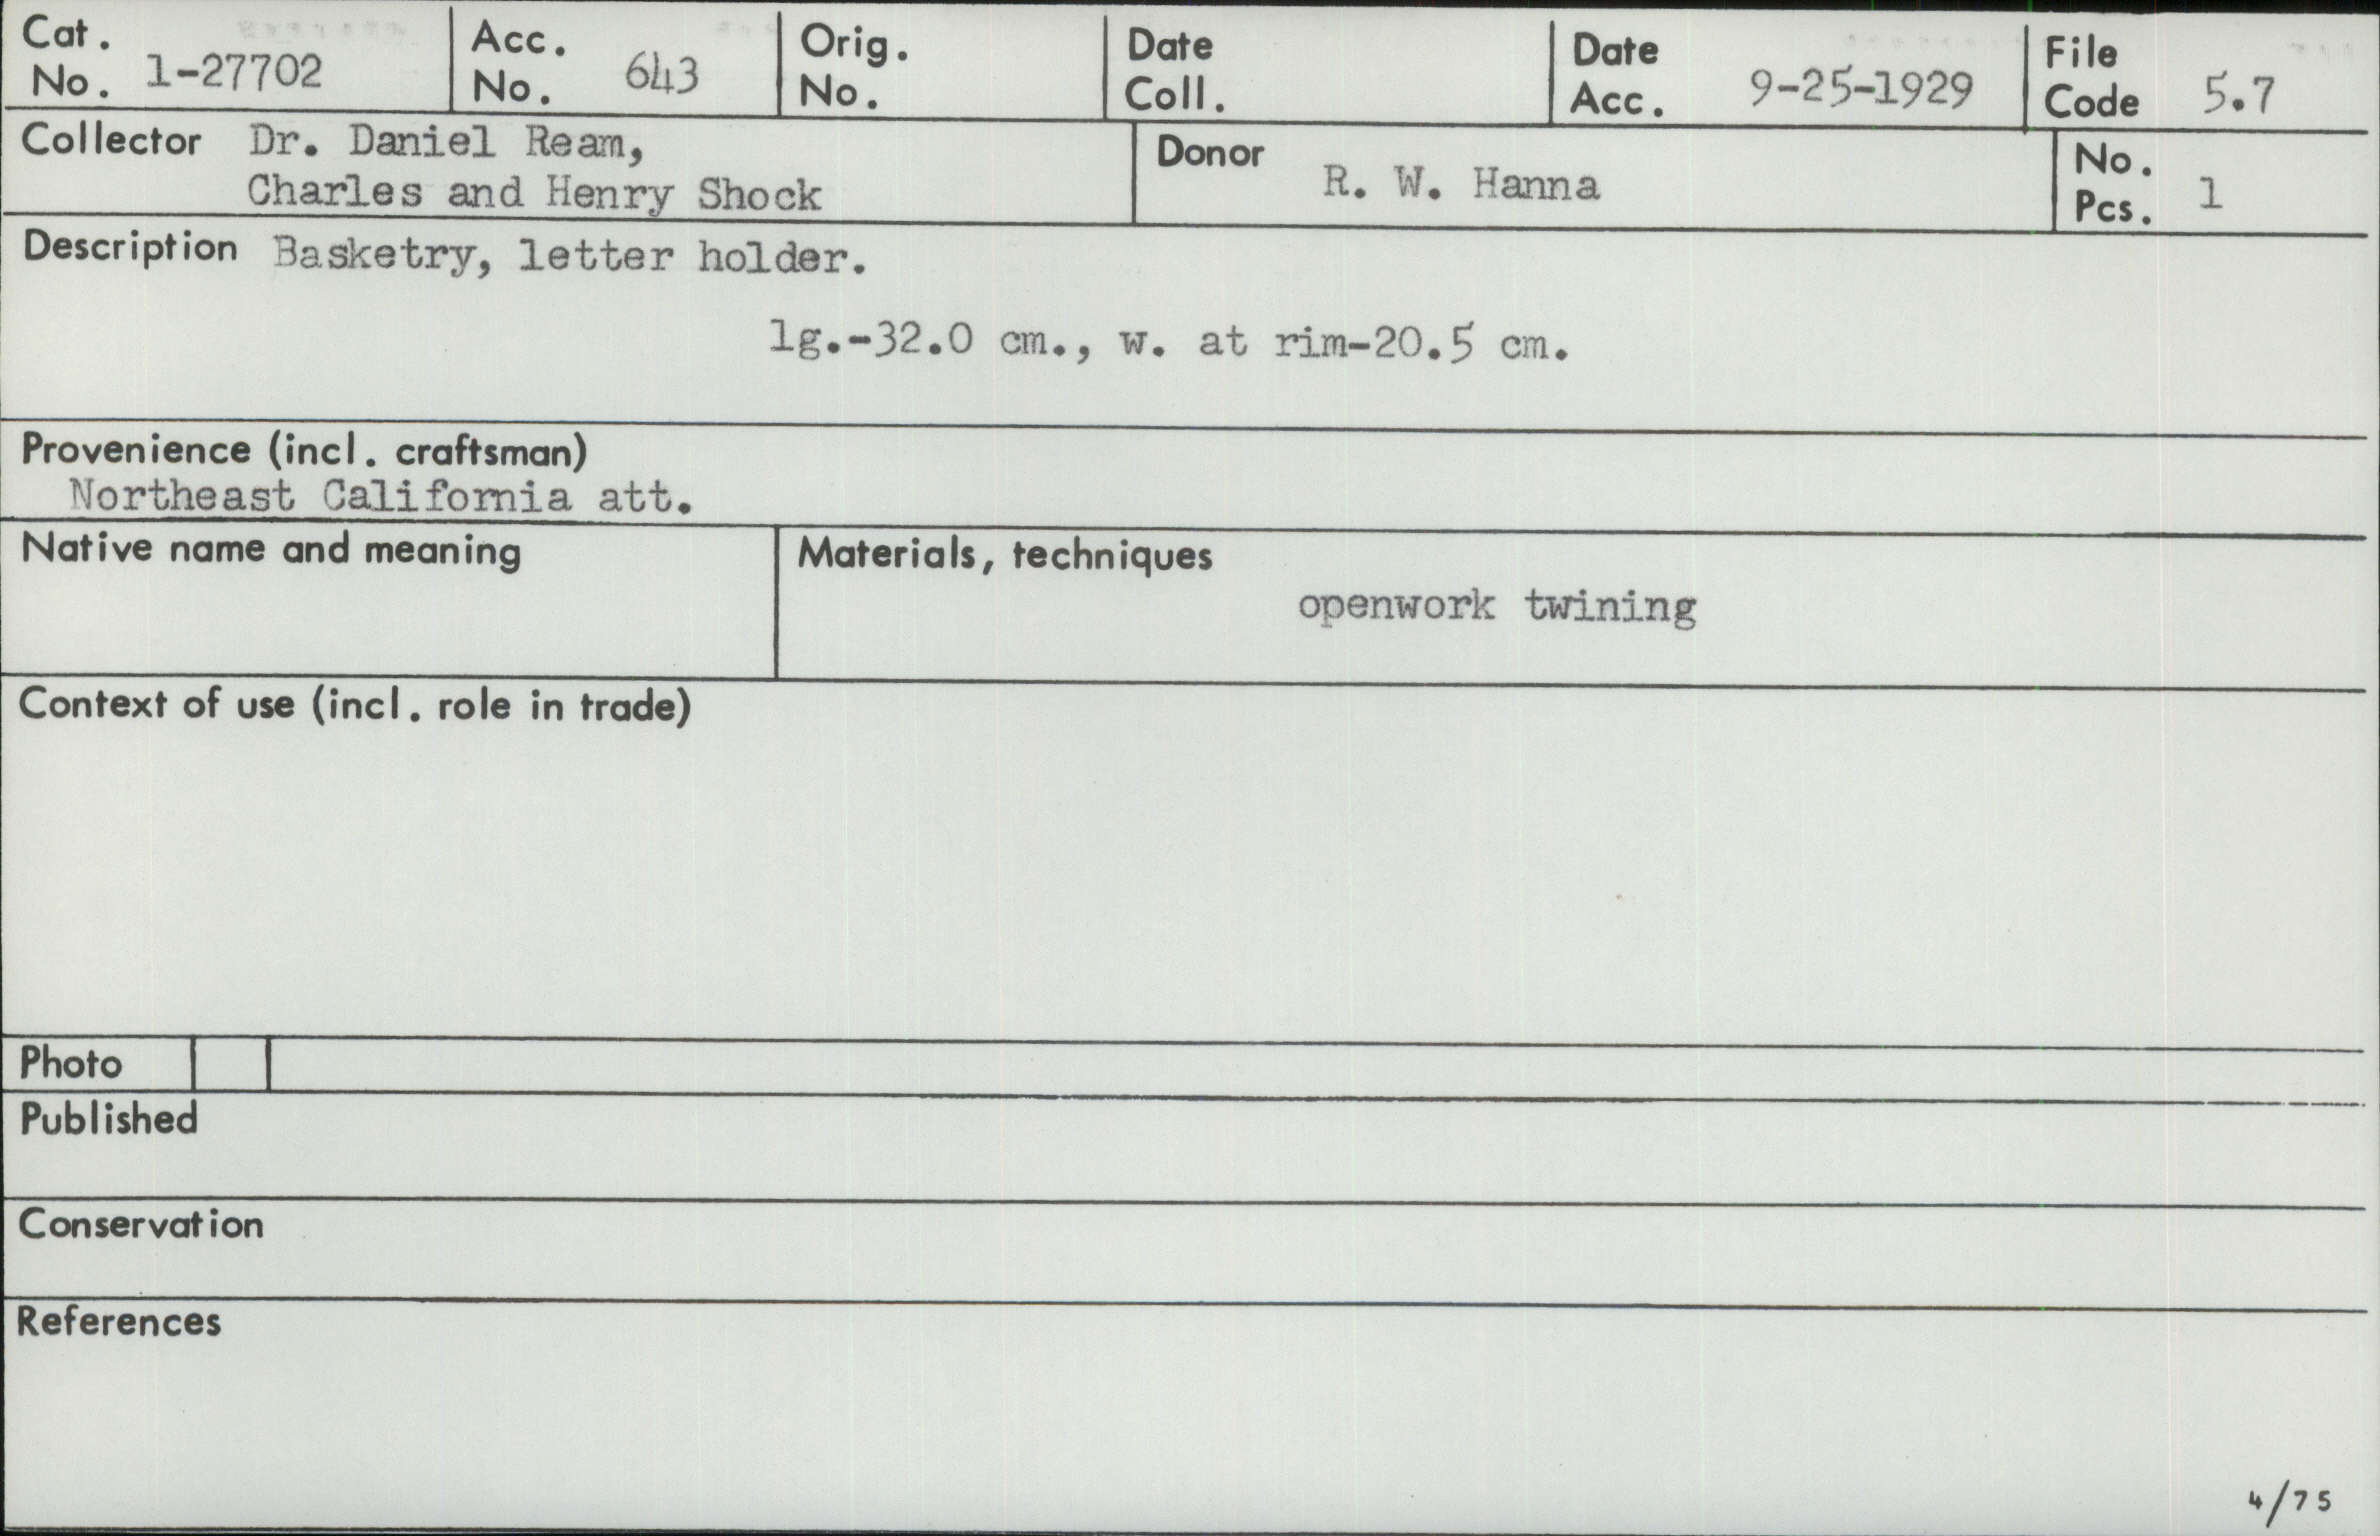 Cat. No. 1-27702 Acc. No. 643 Orig. No. Date Coll. Date Acc. 9-25-1929 File Code 5.7
Collector Dr. Daniel Ream,
Charles and Henry Shock
Donor R. W. Hanna
No. Pcs. 1
Description Basketry, letter holder.
lg.-32.0 cm., w. at rim-20.5 cm.
Provenience (incl. craftsman)
Northeast California att.
Native name and meaning
Materials, techniques
openwork twining
Context of use (incl. role in trade)
Photo
Published
Conservation
References
4/75